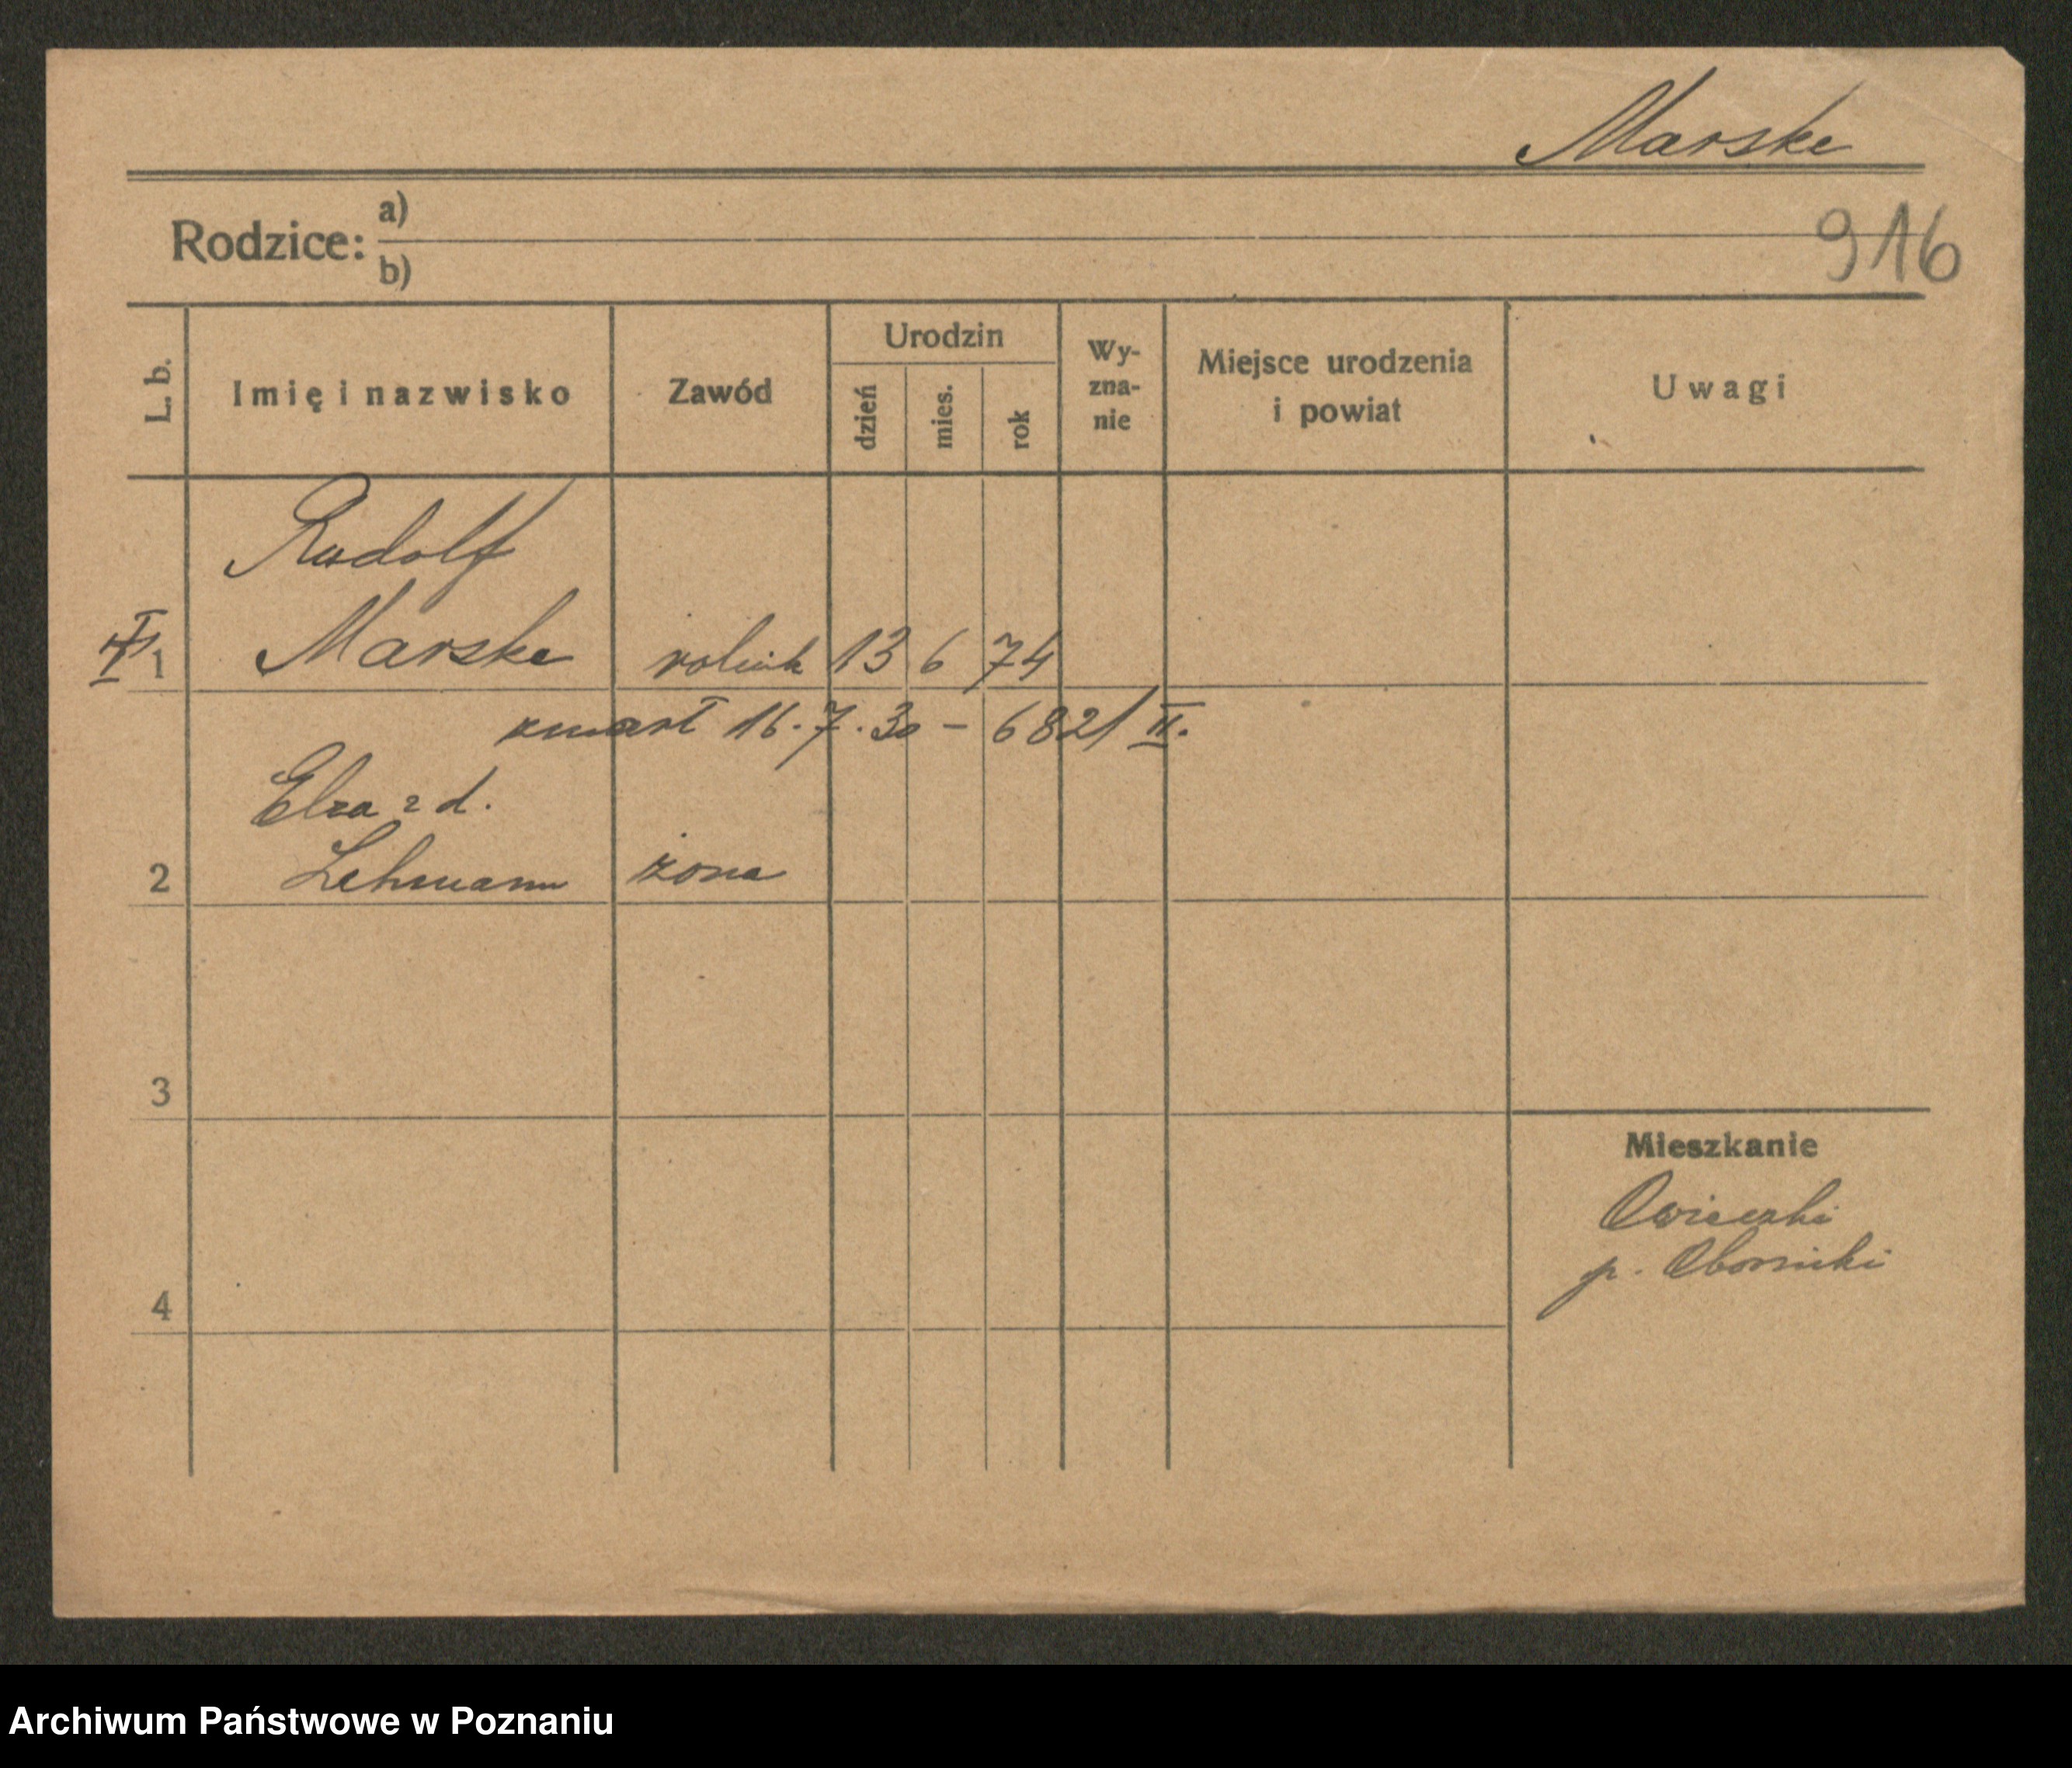 Marske
Rodzice: a)
b)
916
L. b.
Imię i nazwisko
Zawód
Urodzin
dzień
mies.
rok
Wy-
zna-
nie
Miejsce urodzenia
i powiat
Uwagi
Rudolf
1 Marske rolnik 13 6 74
zmarł 16.7.30 - 682/II.
Elza z d.
2 Lehmann żona
3
4
Mieszkanie
Owieczki
p. Oborniki
Archiwum Państwowe w Poznaniu